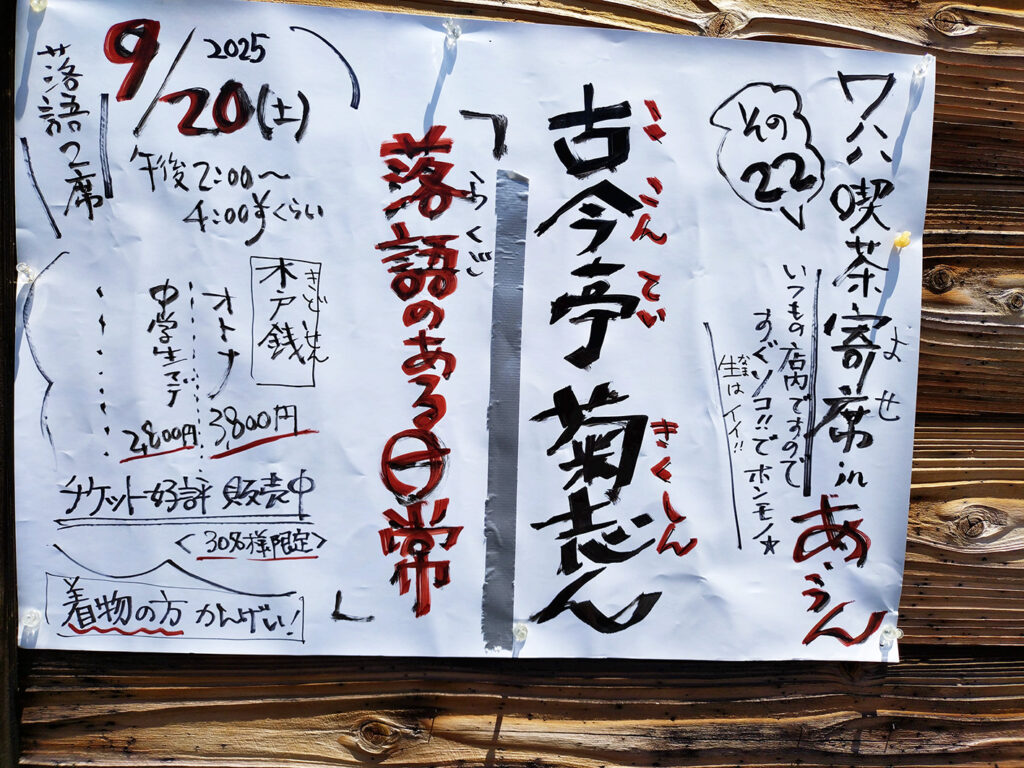 ワハハ喫茶寄席 in あ・うん
よせ
その
22
いつもの店内ですので
すぐソコ!!でホンモノ★
生はイイ!!
なま
古今亭 菊志ん
ここんてい きくしん
「落語のある日常」
らくご
2025
9/20(土)
午後2:00〜
4:00半くらい
落語2席
木戸銭
きどせん
オトナ 3,800円
中学生マデ 2,800円
チケット好評販売中
<30名様限定>
着物の方 かんげい!